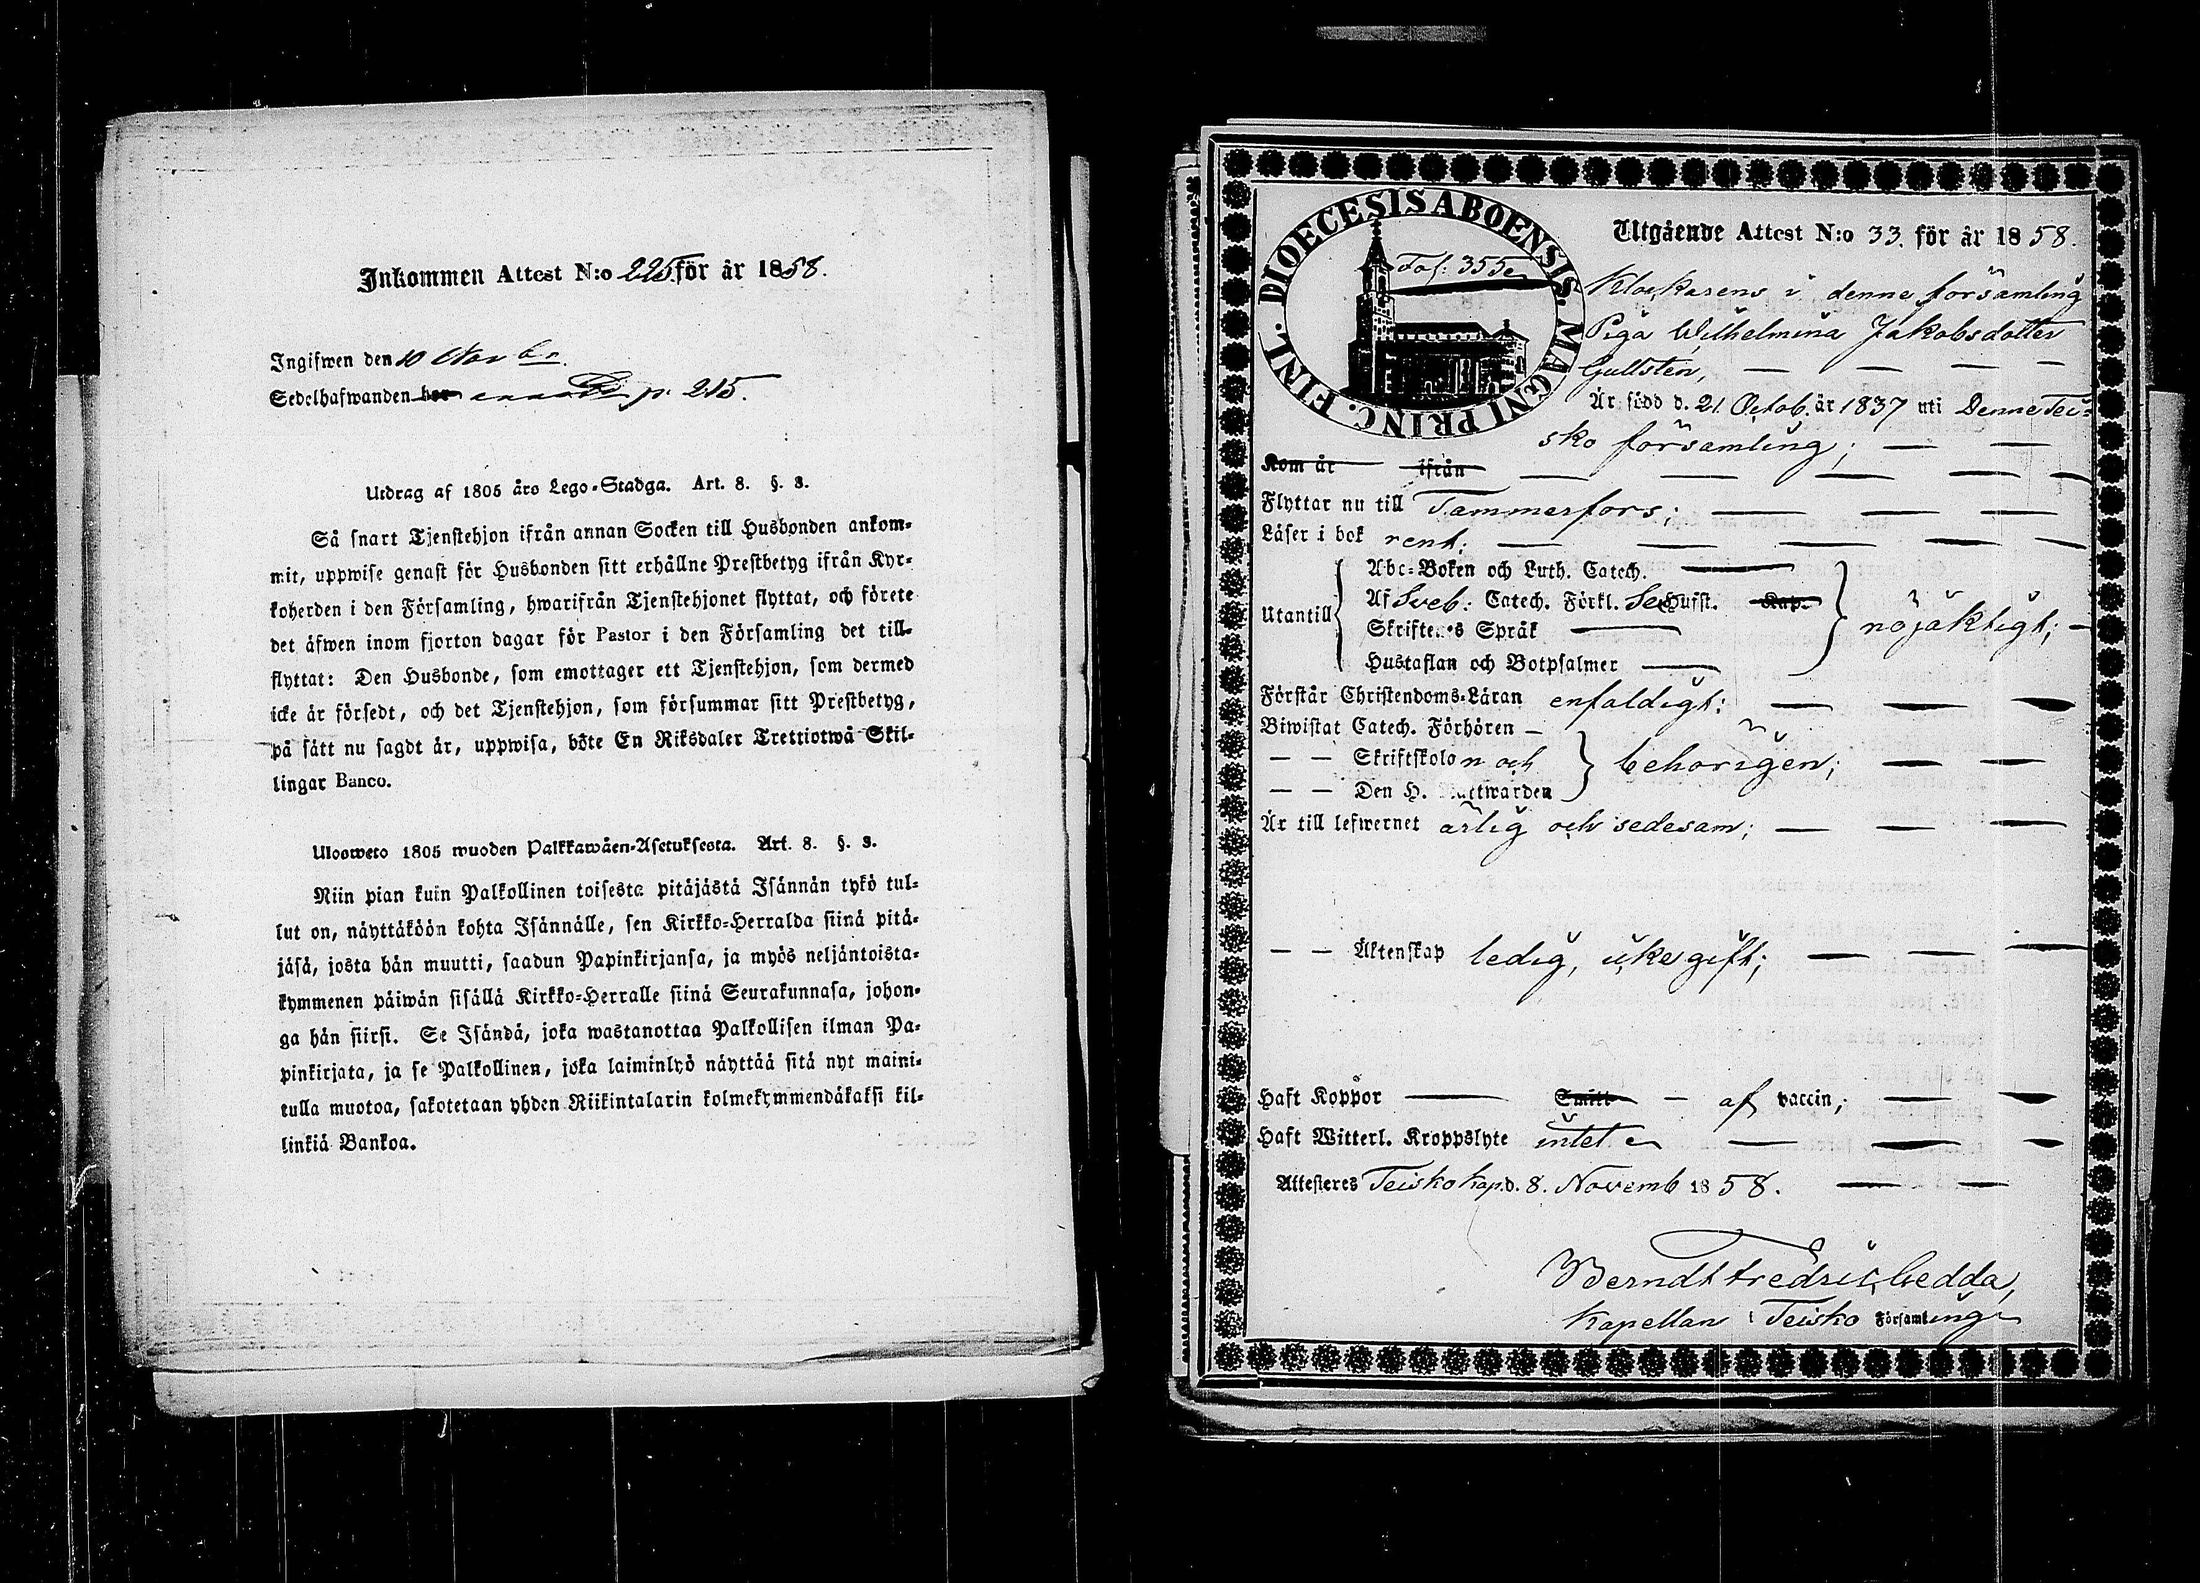 Inkommen Attest N:o 225. för år 1858.
Ingifwen den 10 Novbr.
Sedelhafwanden bor p. 215.
Utdrag af 1805 års Lego-Stadga. Art. 8. §. 3.
Så snart Tjenstehjon ifrån annan Socken till Husbonden ankom-
mit, uppwise genast för Husbonden sitt erhållne Prestbetyg ifrån Kyr-
koherden i den Församling, hwarifrån Tjenstehjonet flyttat, och förete
det äfwen inom fjorton dagar för Pastor i den Församling det till-
flyttat: Den Husbonde, som emottager ett Tjenstehjon, som dermed
icke är försedt, och det Tjenstehjon, som försummar sitt Prestbetyg,
på sätt nu sagdt är, uppwisa, böte En Riksdaler Trettiotwå Skil-
lingar Banco.
Ulosweto 1805 wuoden Palkkawäen-Asetuksesta. Art. 8. §. 3.
Niin pian kuin Palkollinen toisesta pitäjästä Isännän tykö tul-
lut on, näyttäköön kohta Isännälle, sen Kirkko-Herralda siinä pitä-
jäsä, josta hän muutti, saadun Papinkirjansa, ja myös neljäntoista-
kymmenen päiwän sisällä Kirkko-Herralle siinä Seurakunnasa, johon-
ga hän siirsi. Se Isändä, joka wastanottaa Palkollisen ilman Pa-
pinkirjata, ja se Palkollinen, joka laiminlyö näyttää sitä nyt maini-
tulla muotoa, sakotetaan yhden Riikintalarin kolmekymmendäkaksi kil-
linkiä Bankoa.
DIOECESIS ABOENSIS. MAGNI PRINC. FINL.
Fol: 355
Utgående Attest N:o 33. för år 1858.
Klockarens i denne församling
Piga Wilhelmina Jakobsdotter
Gullstén,
Är född d. 21. Octob. år 1837 uti Denne Tei-
sko församling;
Kom år ifrån
Flyttar nu till Tammerfors;
Läser i bok rent;
Utantill
Abc-Boken och Luth. Catech.
Af Sveb: Catech. Förkl. Hufst. Kap.
Skriftenes Språk
Hustaflan och Botpsalmer
nöjaktigt;
Förstår Christendoms-Läran enfaldigt;
Biwistat Catech. Förhören
— — Skriftskolon och
— — Den H. Nattwarden
behörigen;
Är till lefwernet ärlig och sedesam;
— — Äktenskap ledig, icke gift;
Haft Koppor Smitt af vaccin;
Haft Witterl. Kroppslyte intet
Attesteres Teisko Kap. d. 8. Novemb 1858.
Berndt Fredric Gedda,
Kapellan i Teisko Församling